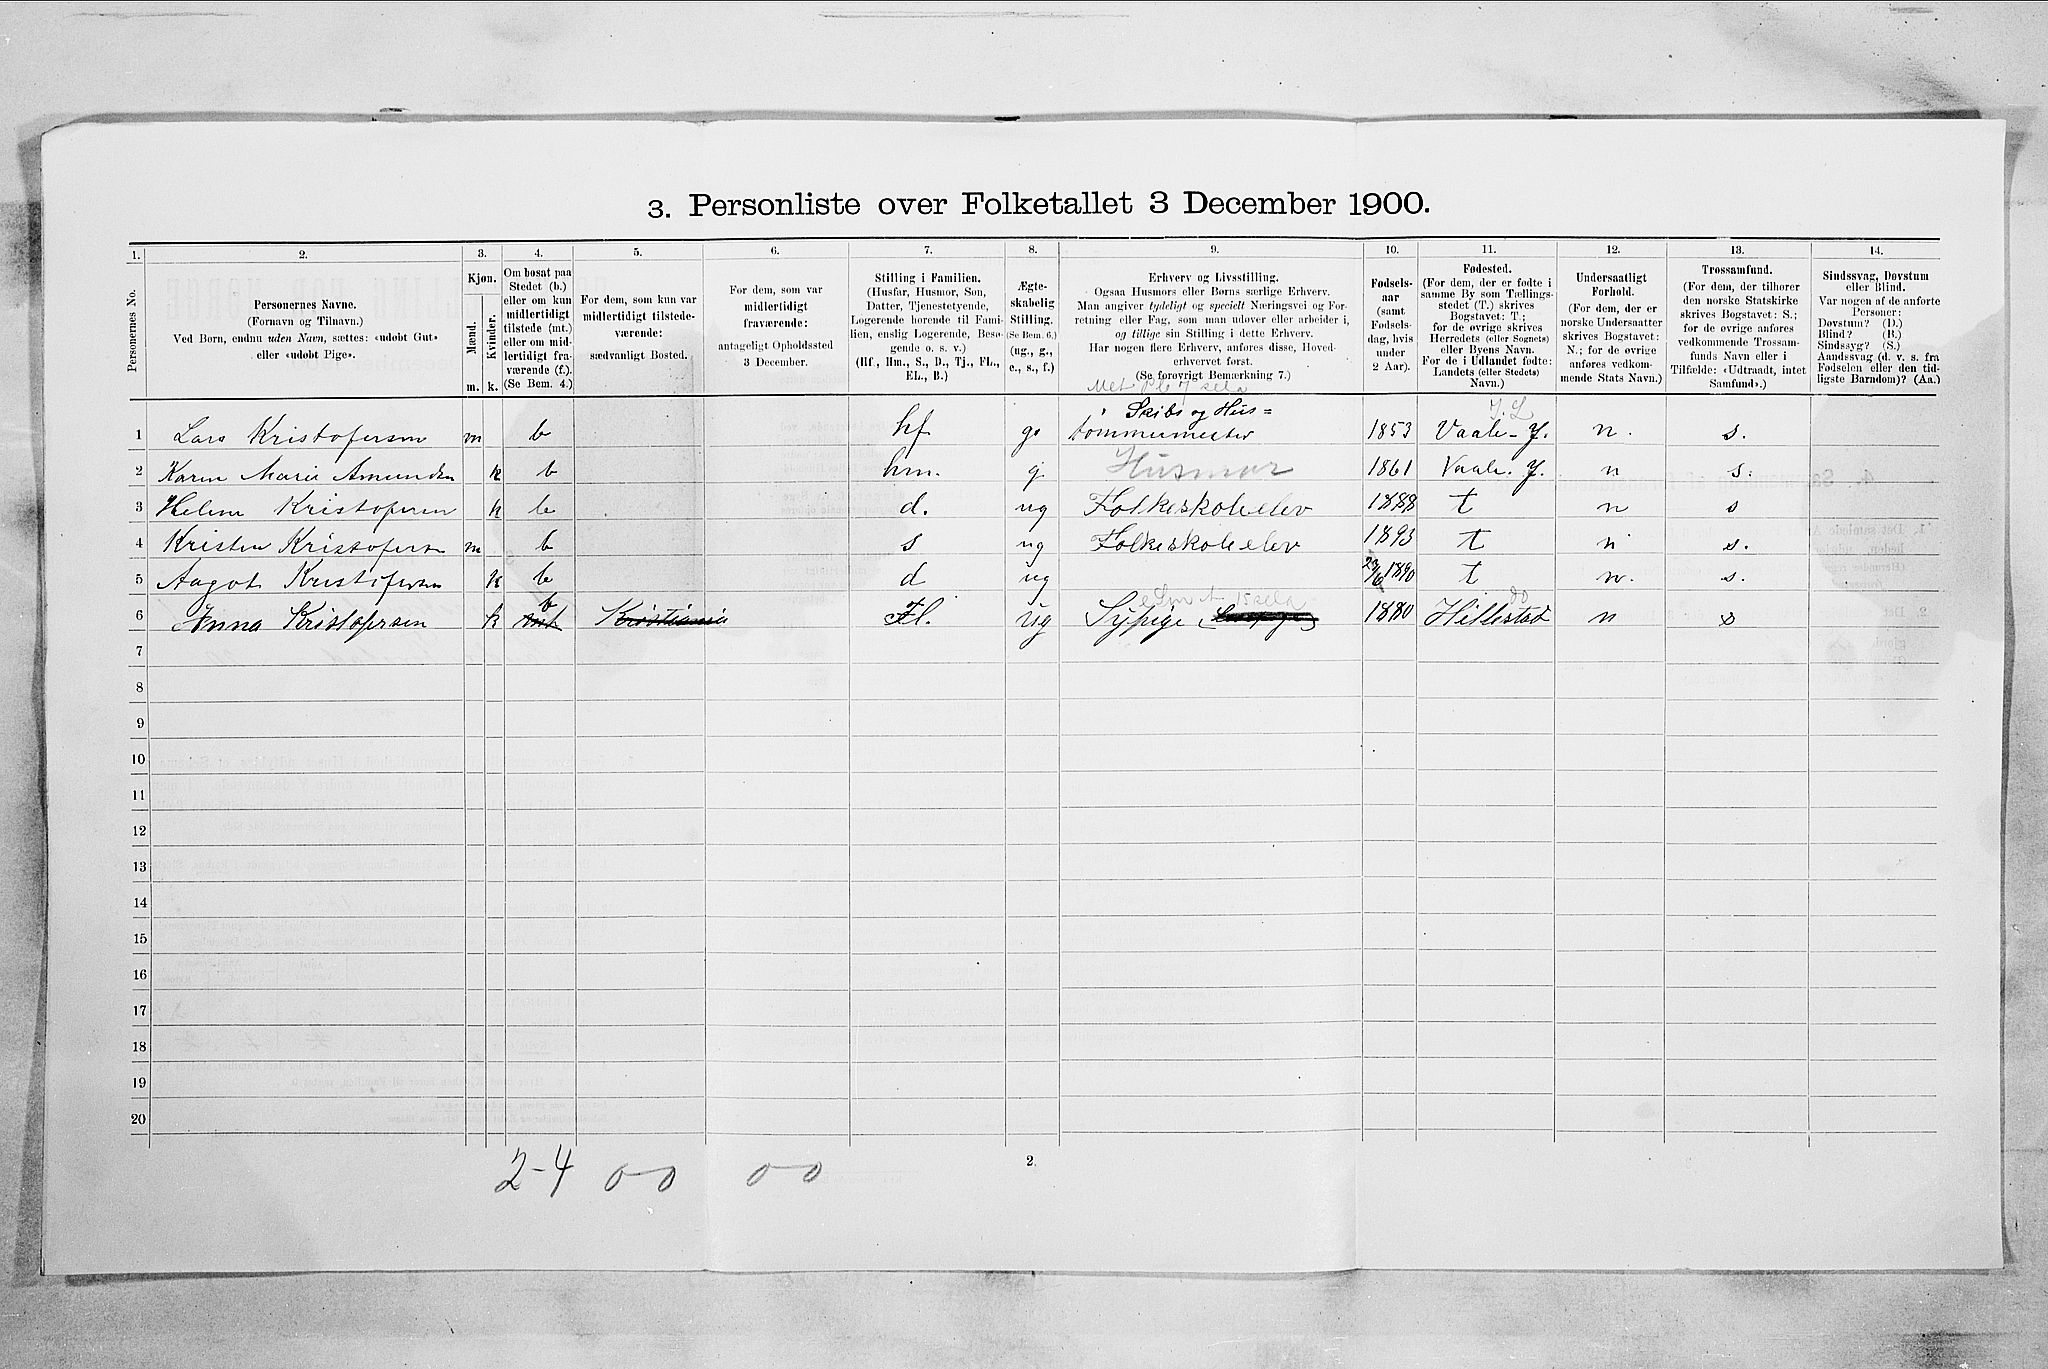 3. Personliste over Folketallet 3 December 1900.
1. 2. 3. 4. 5. 6. 7. 8. 9. 10. 11. 12. 13. 14.
Personernes No.
Personernes Navne.
(Fornavn og Tilnavn.)
Ved Børn, endnu uden Navn, sættes: «udøbt Gut»
eller «udøbt Pige».
Kjøn.
Mænd.
Kvinder.
m. k.
Om bosat paa
Stedet (b.)
eller om kun
midlertidigt
tilstede (mt.)
eller om mid-
lertidigt fra-
værende (f.).
(Se Bem. 4.)
For dem, som kun var
midlertidigt tilstede-
værende:
sædvanligt Bosted.
For dem, som var
midlertidigt
fraværende:
antageligt Opholdssted
3 December.
Stilling i Familien.
(Husfar, Husmor, Søn,
Datter, Tjenestetyende,
Logerende hørende til Fami-
lien, enslig Logerende, Besø-
gende o. s. v.)
(Hf., Hm., S., D., Tj., FL.,
EL., B.)
Ægte-
skabelig
Stilling.
(Se Bem. 6.)
(ug., g.,
e., s., f.)
Erhverv og Livsstilling.
Ogsaa Husmors eller Børns særlige Erhverv.
Man angiver tydeligt og specielt Næringsvei og For-
retning eller Fag, som man udøver eller arbeider i,
og tillige sin Stilling i dette Erhverv.
Har nogen flere Erhverv, anføres disse, Hoved-
erhvervet først.
(Se forøvrigt Bemærkning 7.)
Fødsels-
aar
(samt
Fødsels-
dag, hvis
under
2 Aar).
Fødested.
(For dem, der er fødte i
samme By som Tællings-
stedet (T.) skrives
Bogstavet: T.;
for de øvrige skrives
Herredets (eller Sognets)
eller Byens Navn.
For de i Udlandet fødte:
Landets (eller Stedets)
Navn.)
Undersaatligt
Forhold.
(For dem, der er
norske Undersaatter
skrives Bogstavet:
N.; for de øvrige
anføres vedkom-
mende Stats Navn.)
Trossamfund.
(For dem, der tilhører
den norske Statskirke
skrives Bogstavet: S.;
for de øvrige anføres
vedkommende Trossam-
funds Navn eller i
Tilfælde: «Udtraadt, intet
Samfund».)
Sindssvag, Døvstum
eller Blind.
Var nogen af de anførte
Personer:
Døvstum? (D.)
Blind? (B.)
Sindssyg? (S.)
Aandssvag (d. v. s. fra
Fødselen eller den tid-
ligste Barndom)? (Aa.)
Skibs og Hus=
1 Lars Kristofersen m b hf g tømmermester 1853 Vaale - J. n. s.
2 Karen Marie Amundsen k b hm. g Husmor 1861 Vaale. J. n s.
3 Helene Kristofersen k b d. ug Folkeskoleelev 1888 t n s
4 Kristen Kristofersen m b s ug Folkeskoleelev 1893 t n s.
5 Aagot Kristofersen k b d ug 1890 t n. s.
b
6 Anna Kristofersen k mt Kristiania Fl. ug Sypige 1880 Hillestad n s
7
8
9
10
11
12
13
14
15
16
17
18
19
20
2-4 0-0 0-0
2.